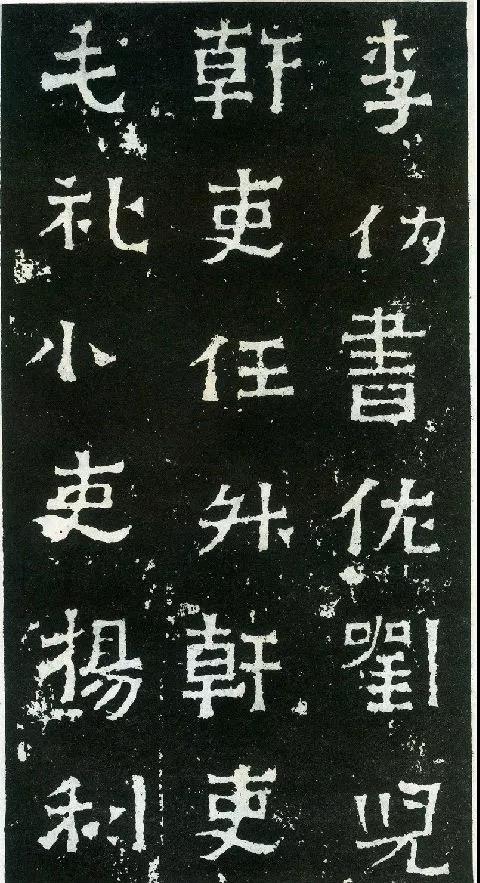 李書佐劉
幹吏任升幹吏
毛礼小吏楊利